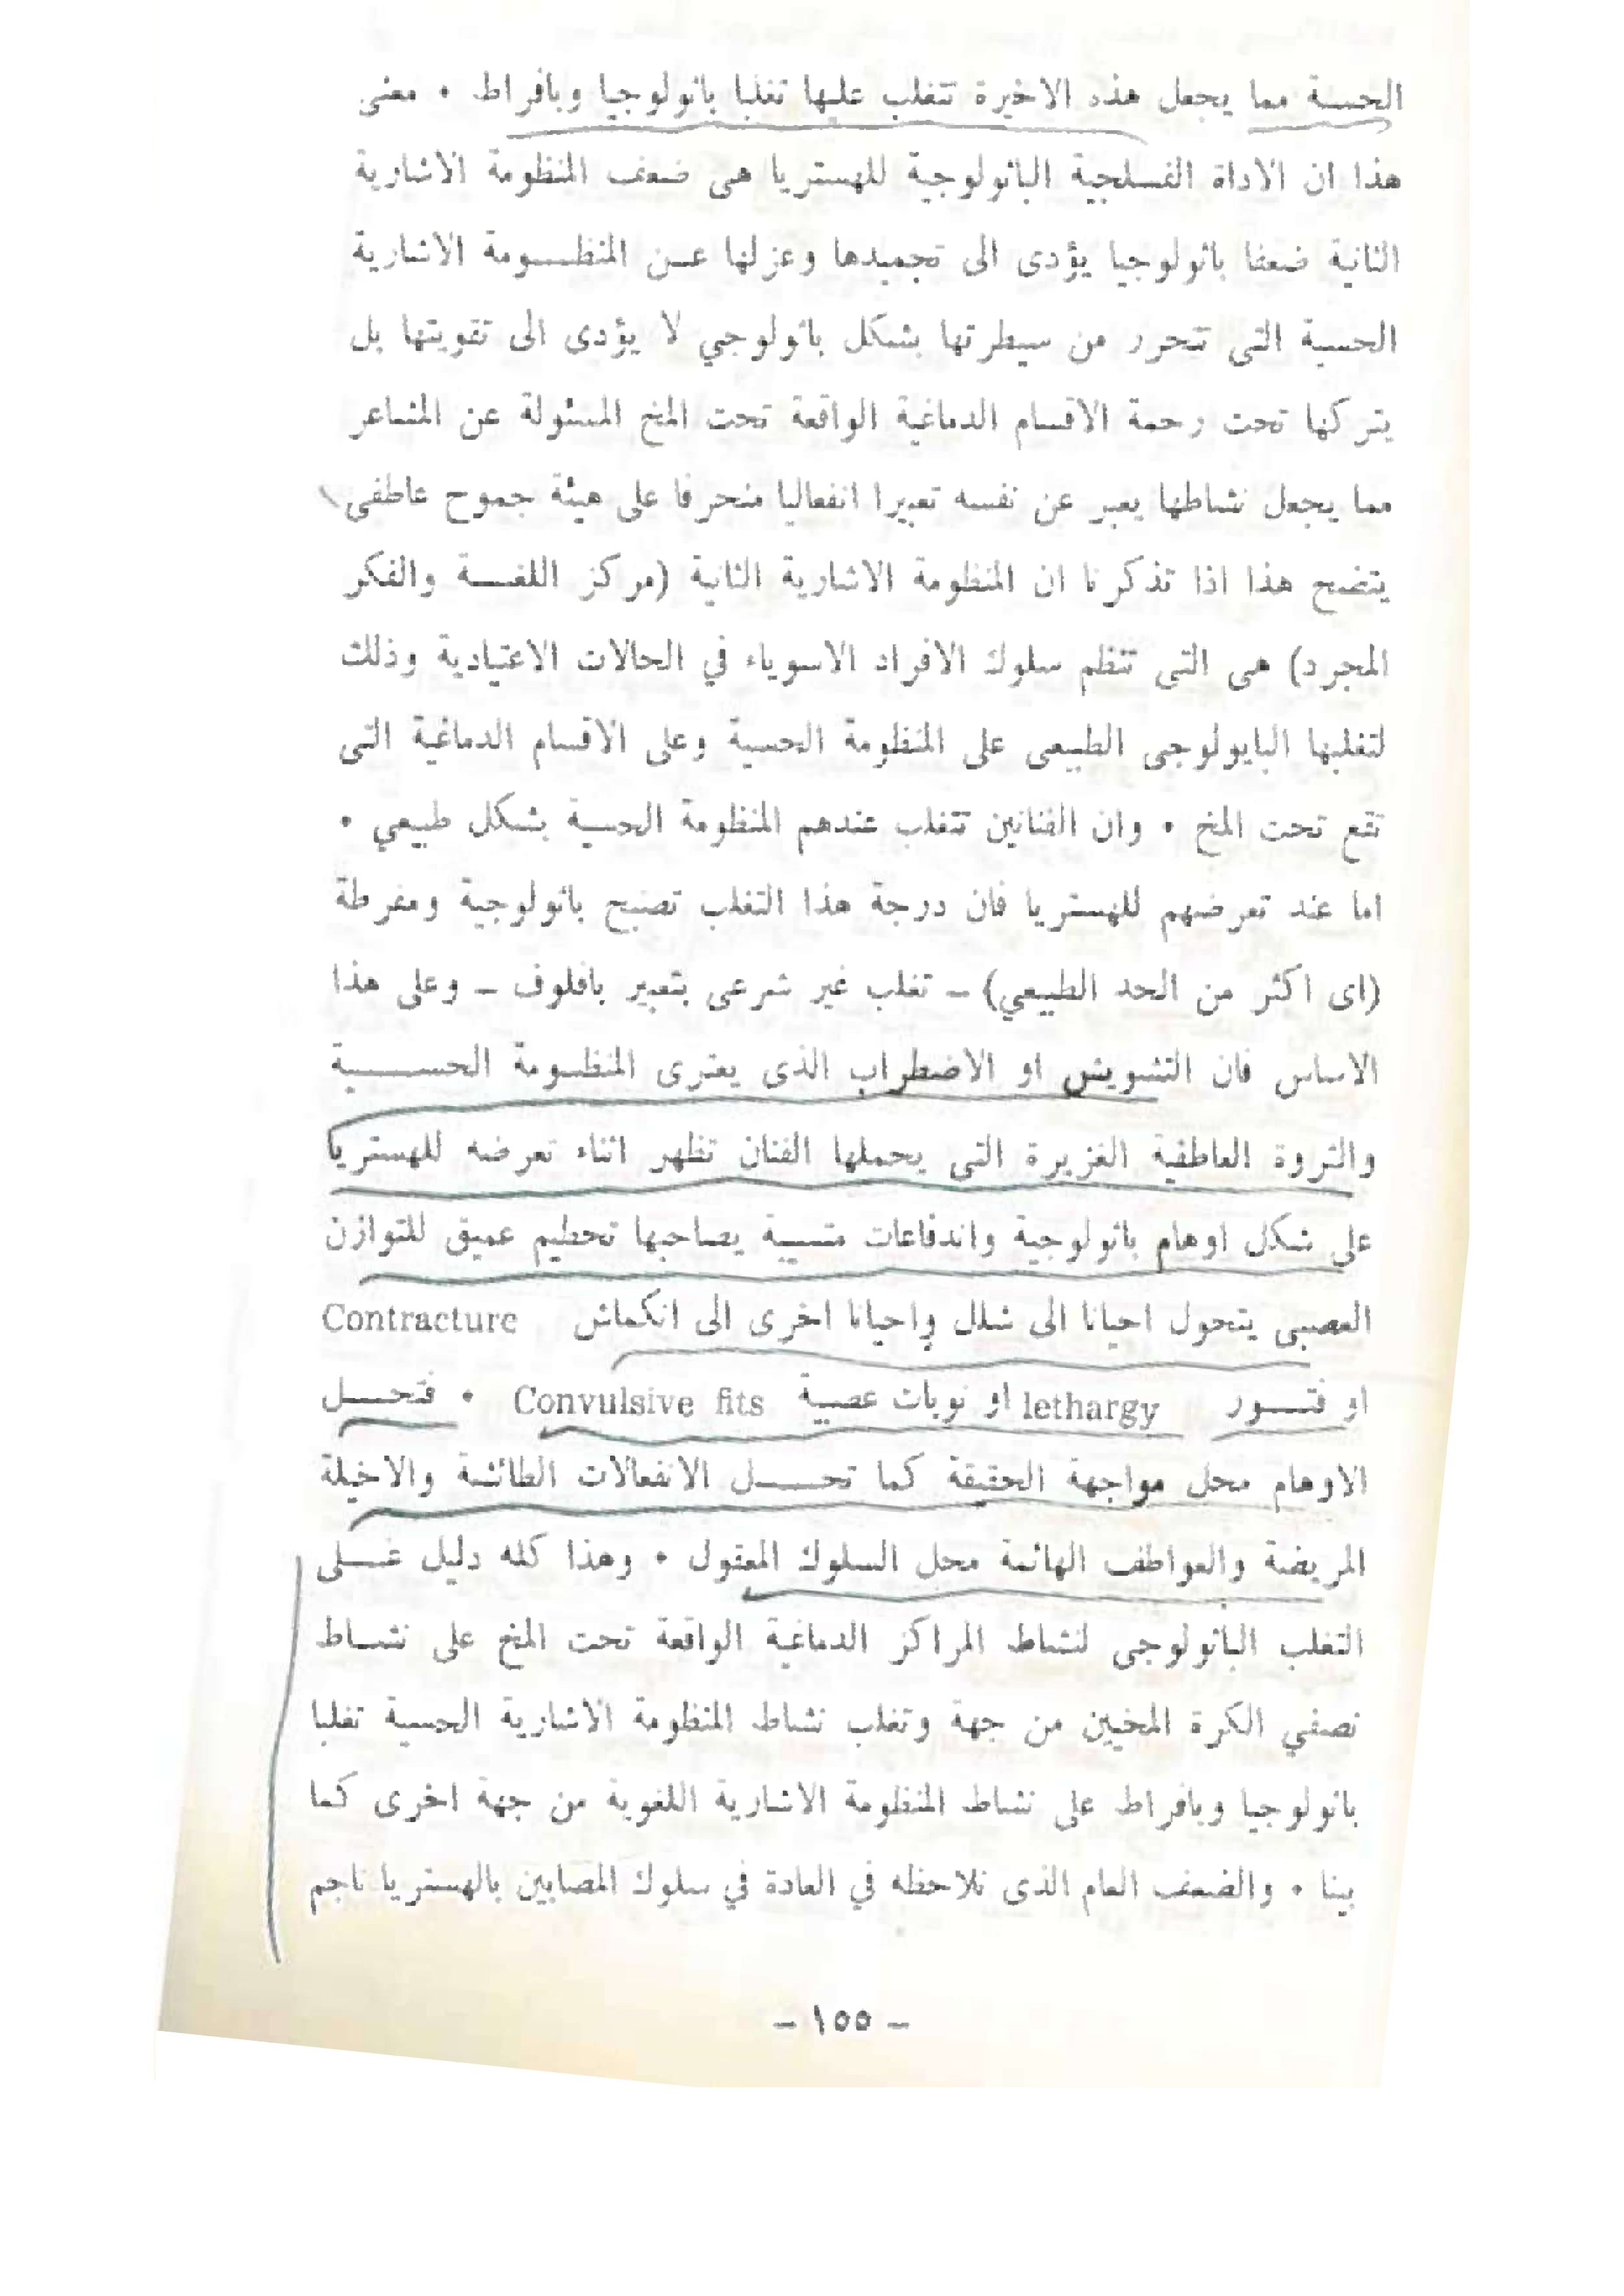 الحسية مما يجعل هذه الاخيرة تتغلب عليها تغلبا باثولوجيا وبافراط . معنى
هذا ان الاداة الفسلجية الباثولوجية للهستريا هى ضعف المنظومة الاشارية
الثانية ضعفا باثولوجيا يؤدى الى تجميدها وعزلها عن المنظومة الاشارية
الحسية التى تتحرر من سيطرتها بشكل باثولوجي لا يؤدى الى تقويتها بل
يتركها تحت رحمة الاقسام الدماغية الواقعة تحت المخ المسئولة عن المشاعر
مما يجعل نشاطها يعبر عن نفسه تعبيرا انفعاليا منحرفا على هيئة جموح عاطفى
يتضح هذا اذا تذكرنا ان المنظومة الاشارية الثانية (مركز اللغة والفكر
المجرد) هى التى تنظم سلوك الافراد الاسوياء في الحالات الاعتيادية وذلك
لتغلبها البايولوجى الطبيعى على المنظومة الحسية وعلى الاقسام الدماغية التى
تقع تحت المخ . وان الفنانين تتغلب عندهم المنظومة الحسية بشكل طبيعي .
اما عند تعرضهم للهستريا فان درجة هذا التغلب تصبح باثولوجية ومفرطة
(اى اكثر من الحد الطبيعي) – تغلب غير شرعى بتعبير بافلوف – وعلى هذا
الاساس فان التشويش او الاضطراب الذى يعترى المنظومة الحسية
والثروة العاطفية الغزيرة التى يحملها الفنان تظهر اثناء تعرضه للهستريا
على شكل اوهام باثولوجية واندفاعات متسيبة يصاحبها تحطيم عميق للتوازن
العصبى يتحول احيانا الى شلل واحيانا اخرى الى انكماش Contracture
او فتور lethargy او نوبات عصبية Convulsive fits . فتحل
الاوهام محل مواجهة الحقيقة كما تحل الانفعالات الطائشة والاخيلة
المريضة والعواطف الهائمة محل السلوك المعقول . وهذا كله دليل على
التغلب الباثولوجى لنشاط المراكز الدماغية الواقعة تحت المخ على نشاط
نصفي الكرة المخيين من جهة وتغلب نشاط المنظومة الاشارية الحسية تغلبا
باثولوجيا وبافراط على نشاط المنظومة الاشارية اللغوية من جهة اخرى كما
بينا . والضعف العام الذى نلاحظه في العادة في سلوك المصابين بالهستريا ناجم
– ١٥٥ –